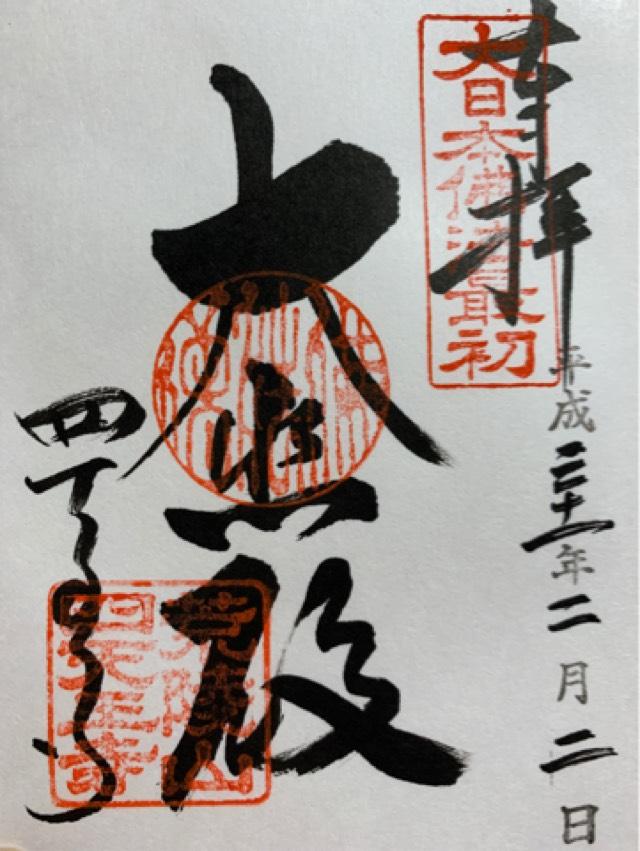 奉拝
大日本佛法最初
平成三十一年二月二日
大悲殿
四天王寺
荒陵山
四天王寺